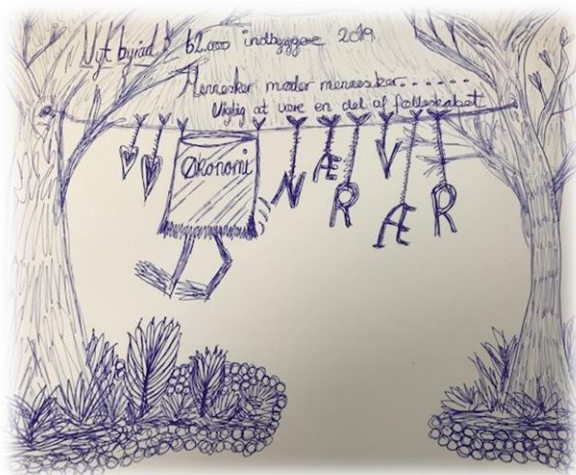 Nyt byråd 62.000 indbyggere 2019
Mennesker møder mennesker.......
Vigtig at være en del af fælleskabet
Økonomi
NÆRVÆR